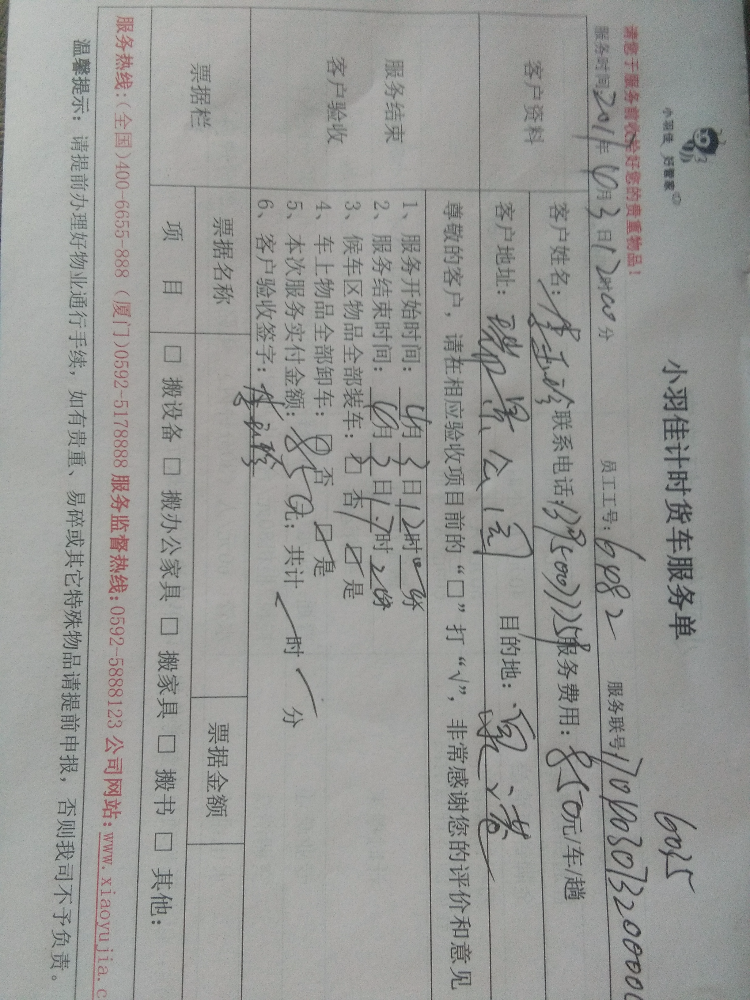 小羽佳 好管家
小羽佳计时货车服务单
6035
请您于服务前收拾好您的贵重物品！
服务时间:201 年 6月3日12时00分 员工工号:6482 服务联号
客户资料
客户姓名: 联系电话: 服务费用:850元/车/趟
客户地址:瑞景公园 目的地:
服务结束
客户验收
尊敬的客户，请在相应验收项目前的“□”打“√”，非常感谢您的评价和意见
1、服务开始时间: 月3日12时 分
2、服务结束时间:6月3日17时20分
3、候车区物品全部装车:□否 ☑是
4、车上物品全部卸车:□否 ☑是
5、本次服务实付金额:850元；共计 时 分
6、客户验收签字:
票据栏
票据名称 票据金额
项 目 □搬设备 □搬办公家具 □搬家具 □搬书 □其他:
服务热线:(全国)400-6655-888 (厦门)0592-5178888 服务监督热线:0592-5888123 公司网站:www.xiaoyujia.c
温馨提示: 请提前办理好物业通行手续，如有贵重、易碎或其它特殊物品请提前申报，否则我司不予负责。